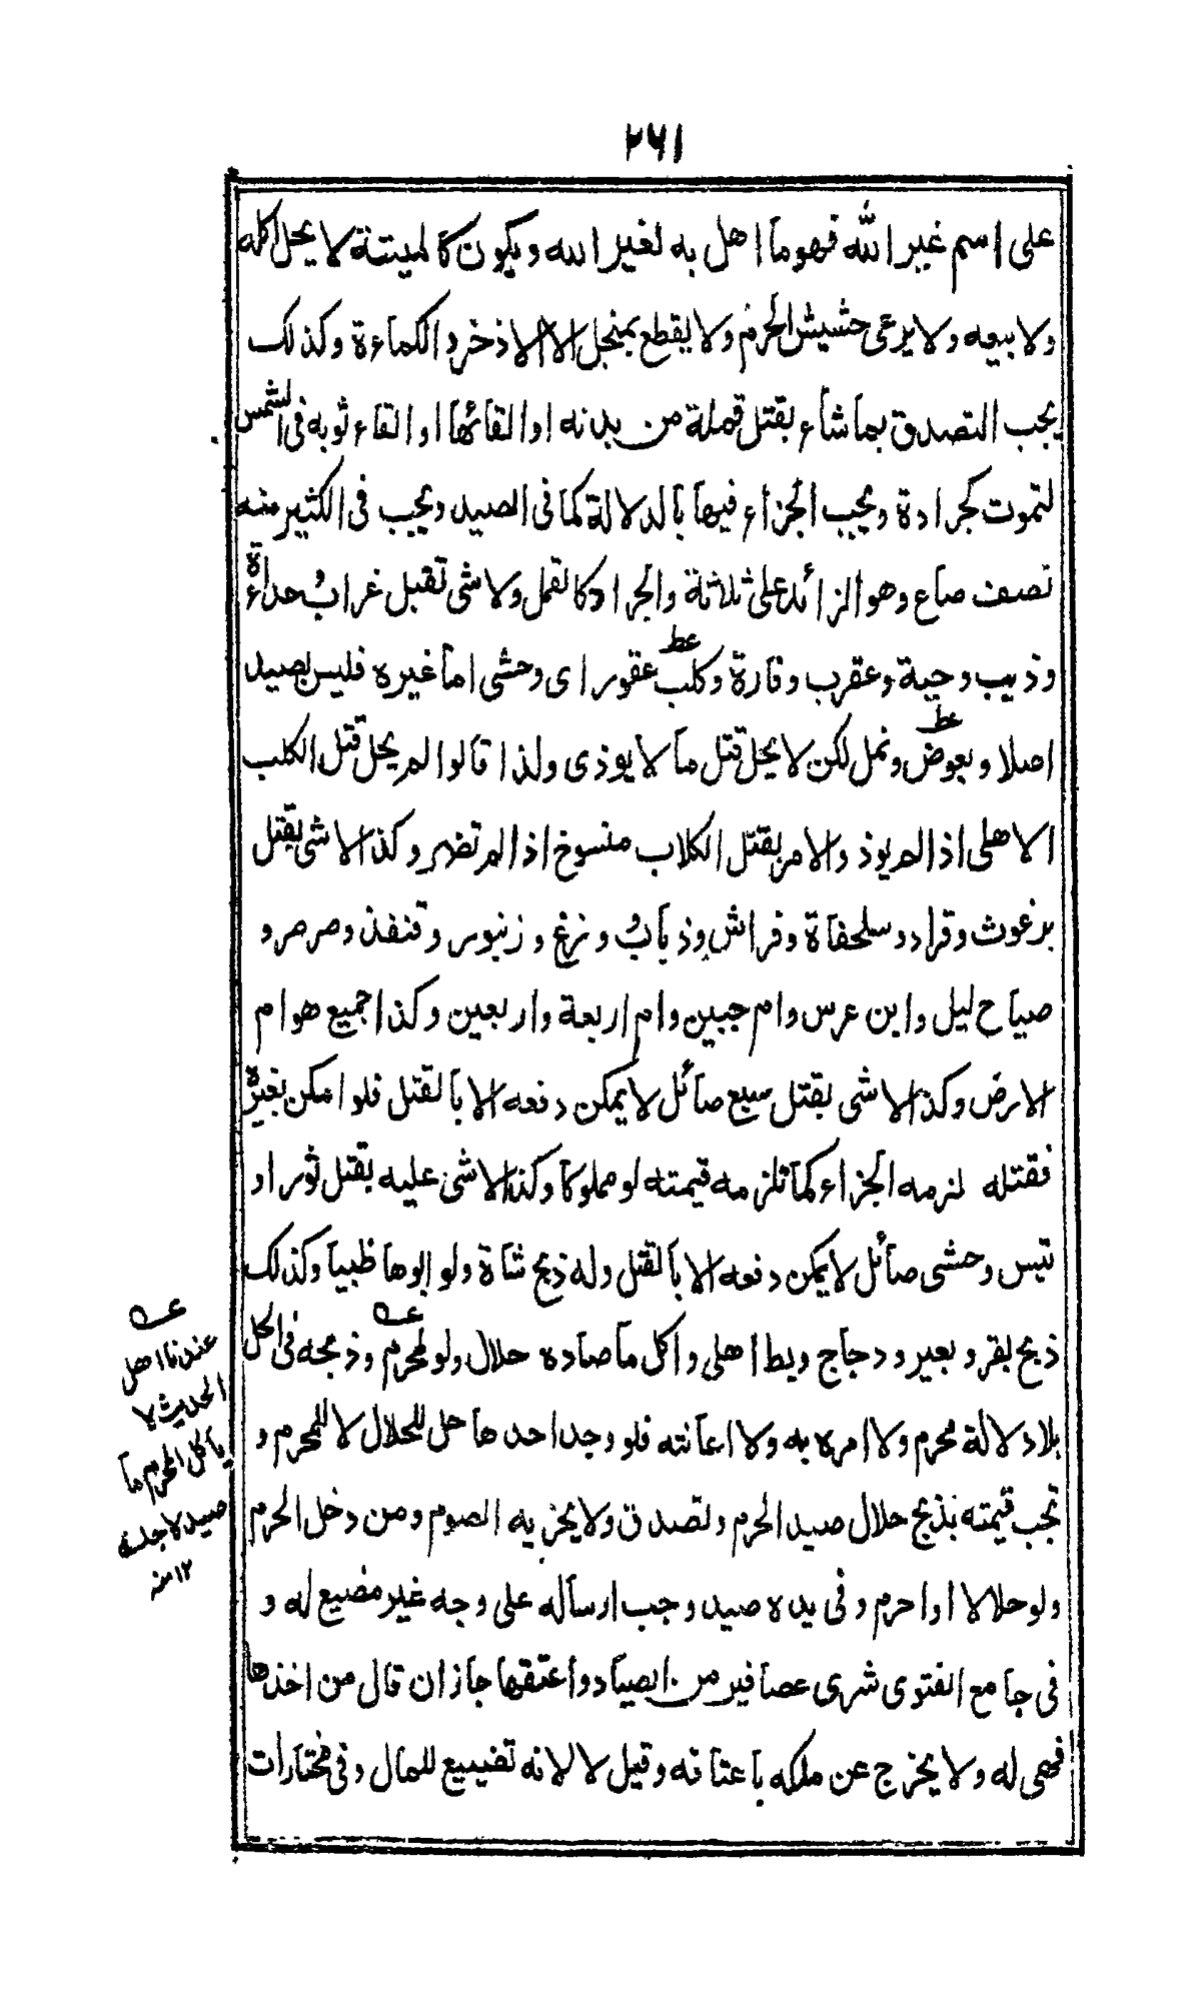 ٢٦١
على اسم غير الله فهو ما اهل به لغير الله ويكون كالميتة لا يحل اكله
ولا بيعه ولا يرعى حشيش الحرم ولا يقطع بمنجل الا الاذخر والكماءة وكذلك
يجب التصدق بما شاء بقتل قملة من بدنه او القائها او القاء ثوبه فى الشمس
لتموت كجرادة ويجب الجزاء فيها بالدلالة كما فى الصيد ويجب فى الكثير منه
نصف صاع وهو الزائد على ثلاثة والجراد كالقمل ولا شى بقتل غراب وحداءة
وذيب وحية وعقرب وفارة وكلب عقور اى وحشى اما غيره فليس بصيد
اصلا وبعوض ونمل لكن لا يحل قتل ما لا يوذى ولذا قالوا لم يحل قتل الكلب
الاهلى اذا لم يوذ والامر بقتل الكلاب منسوخ اذا لم تضر وكذا لا شى بقتل
برغوث وقراد وسلحفاة وفراش وذباب ووزغ وزنبور وقنفذ وصرصر و
صياح ليل وابن عرس وام حبين وام اربعة واربعين وكذا جميع هوام
الارض وكذا لا شى بقتل سبع صائل لا يمكن دفعه الا بالقتل فلو امكن بغيره
فقتله لزمه الجزاء كما تلزمه قيمته لو مملوكا وكذا لا شى عليه بقتل ثور او
تيس وحشى صائل لا يمكن دفعه الا بالقتل وله ذبح شاة ولو ابوها ظبيا وكذلك
ذبح بقر وبعير ودجاج وبط اهلى واكل ما صاده حلال ولو لمحرم وذبحه فى الحل
بلا دلالة محرم ولا امره به ولا اعانته فلو وجد احدها حل للحلال لا للمحرم و
تجب قيمته بذبح حلال صيد الحرم وتصدق ولا يجزيه الصوم ومن دخل الحرم
ولو حلالا او احرم وفى يده صيد وجب ارساله على وجه غير مضيع له و
فى جامع الفتوى شرى عصافير من الصياد واعتقها جاز ان قال من اخذها
فهى له ولا يخرج عن ملكه باعتاقه وقيل لا لانه تضييع للمال وفى مختارات
عندنا اهل
الحديث لا
ياكل المحرم ما
صيد لاجله
١٢ منه